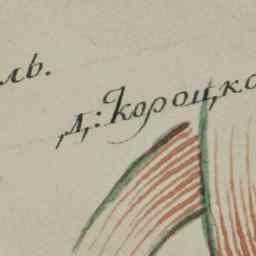 ль.
д,: Короцко